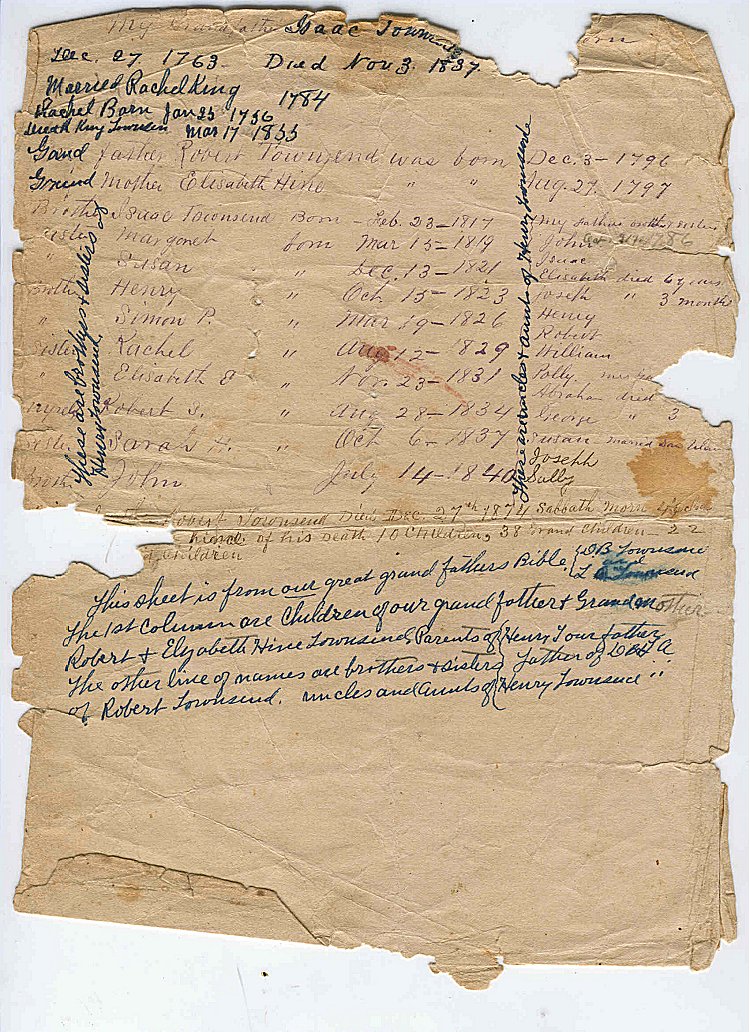 My Grandfather Isaac Towns
Dec. 27 1763 Died Nov 3 1837.
Married Rachel King 1784
Rachel Born Jan 25 1756
Death King Townsen Mar 17 1855
Grand father Robert Townsend was born Dec. 3 - 1796
Grand Mother Elisabeth Hine " " Aug. 27. 1797
Brother Isaac Townsend Born - Feb. 23 - 1817
Sister Margaret born Mar 15 - 1819
" Susan " Dec. 13 - 1821
Brother Henry " Oct 15 - 1823
" Simon P. " Mar 19 - 1826
Sister Rachel " Aug 12 - 1829
" Elisabeth E " Nov. 23 - 1831
Robert S. " Aug 28 - 1834
Sister Sarah H. " Oct 6 - 1837
Brother John July 14 - 1840
These are brothers & sisters of
Henry Townsend.
These are uncles & aunts of Henry Townsende
My father
John 1786
Isaac
Elisabeth died 6 years
Joseph " 3 months
Henry
Robert
William
Polly.
Abraham died
George " 3
Susan married
Joseph
Sally
Robert Townsend Died Dec 27th 1874 Sabbath Morn
of his Death 10 Children, 38 Grand Children - 22
Children
This sheet is from our great grand fathers Bible { D B Townsend
and
L A Townsend
The 1st Column are Children of our grand father & Grandmother
Robert & Elizabeth Hine Townsend. Parents of { Henry T our father
The other line of names are brothers & sisters father of D & L A
of Robert Townsend. uncles and Aunts of { Henry Townsend "